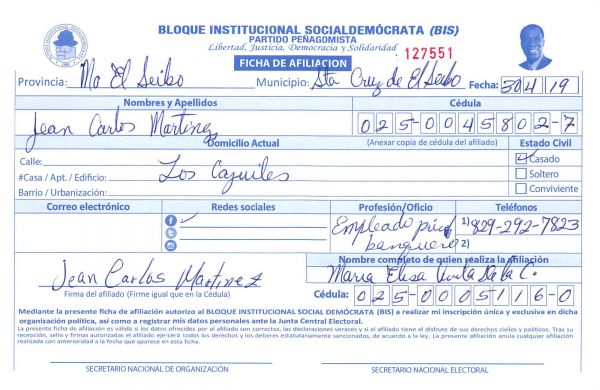 BLOQUE INSTITUCIONAL SOCIALDEMÓCRATA (BIS)
PARTIDO PEÑAGOMISTA
Libertad, Justicia, Democracia y Solidaridad
FICHA DE AFILIACION
127551
Provincia: El Seibo Municipio: Sta Cruz de El Seibo Fecha: 30 4 19
Nombres y Apellidos Cédula
Jean Carlos Martinez 025-0045802-7
Domicilio Actual (Anexar copia de cédula del afiliado) Estado Civil
Calle: Casado
#Casa / Apt. / Edificio: Los Cajuiles Soltero
Barrio / Urbanización: Conviviente
Correo electrónico Redes sociales Profesión/Oficio Teléfonos
Empleado 1) 829-292-7823
banquero 2)
Nombre completo de quien realiza la afiliación
Jean Carlos Martinez Maria Elisa
Firma del afiliado (Firme igual que en la Cédula) Cédula: 025-0005116-0
Mediante la presente ficha de afiliación autorizo al BLOQUE INSTITUCIONAL SOCIAL DEMÓCRATA (BIS) a realizar mi inscripción única y exclusiva en dicha
organización política, así como a registrar mis datos personales ante la Junta Central Electoral.
La presente ficha de afiliación es válida si los datos ofrecidos por el afiliado son correctos, las declaraciones veraces y si el afiliado tiene el disfrute de sus derechos civiles y políticos. Tras su
recepción, sello y firmas autorizadas el afiliado ejercerá todos los derechos y los deberes estatutariamente sancionados, de acuerdo a la ley. La presente afiliación anula cualquier afiliación
realizada con anterioridad a la fecha que aparece en esta ficha.
SECRETARIO NACIONAL DE ORGANIZACIÓN SECRETARIO NACIONAL ELECTORAL